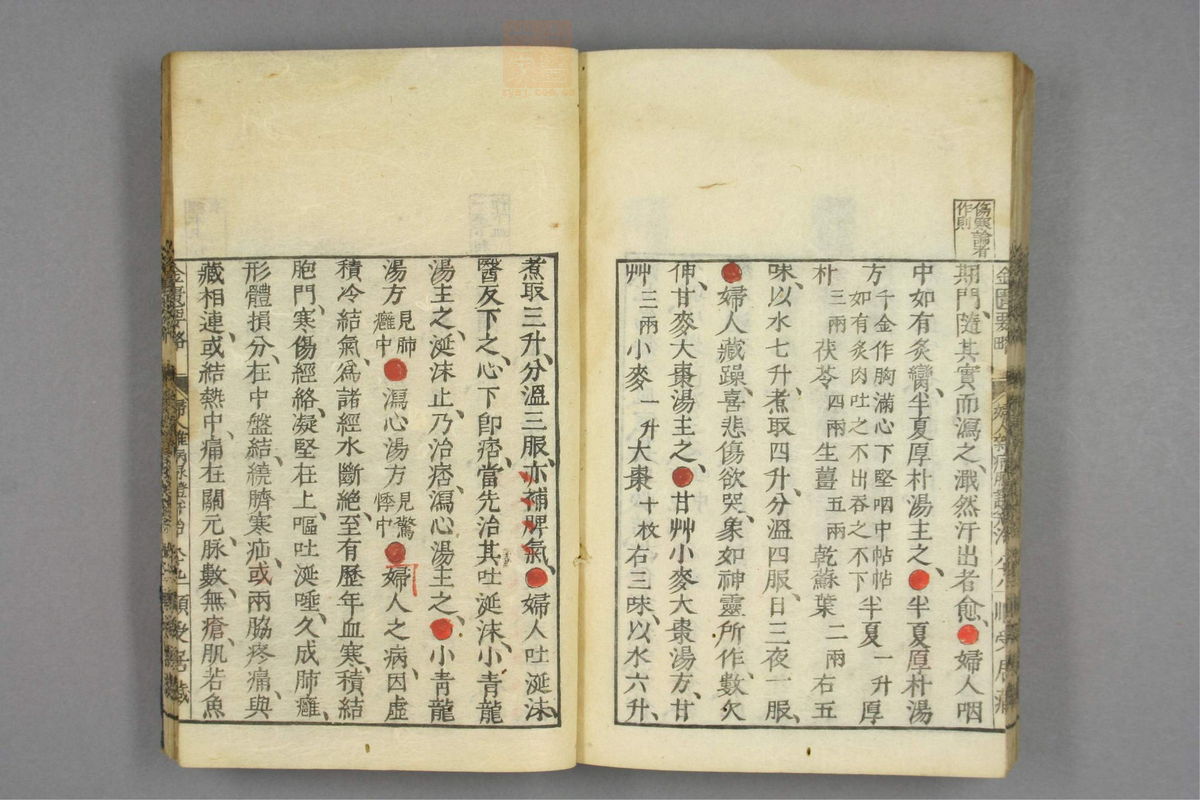 傷寒論者
作則
金匱要略
期門、隨其實而瀉之、濈然汗出者愈、婦人咽
中如有炙臠、半夏厚朴湯主之、半夏厚朴湯
方千金作胸滿心下堅咽中帖帖如有炙肉吐之不出吞之不下半夏一升厚
朴三兩茯苓四兩生薑五兩乾蘇葉二兩右五
味、以水七升、煮取四升、分溫四服、日三夜一服、
婦人藏躁、喜悲傷欲哭、象如神靈所作、數欠
伸、甘麥大棗湯主之、甘艸小麥大棗湯方、甘
艸三兩小麥一升大棗十枚右三味、以水六升、
煮取三升、分溫三服、亦補脾氣、婦人吐涎沫、
醫反下之、心下卽痞、當先治其吐涎沫、小青龍
湯主之、涎沫止、乃治痞、瀉心湯主之、小青龍
湯方見肺癰中瀉心湯方見驚悸中婦人之病、因虛
積冷結氣、爲諸經水斷絕、至有歷年、血寒積結
胞門、寒傷經絡、凝堅在上、嘔吐涎唾、久成肺癰、
形體損分、在中盤結、繞臍寒疝、或兩脇疼痛、與
藏相連、或結熱中、痛在關元、脉數、無瘡、肌若魚
金匱要略 婦人雜病脉證并治